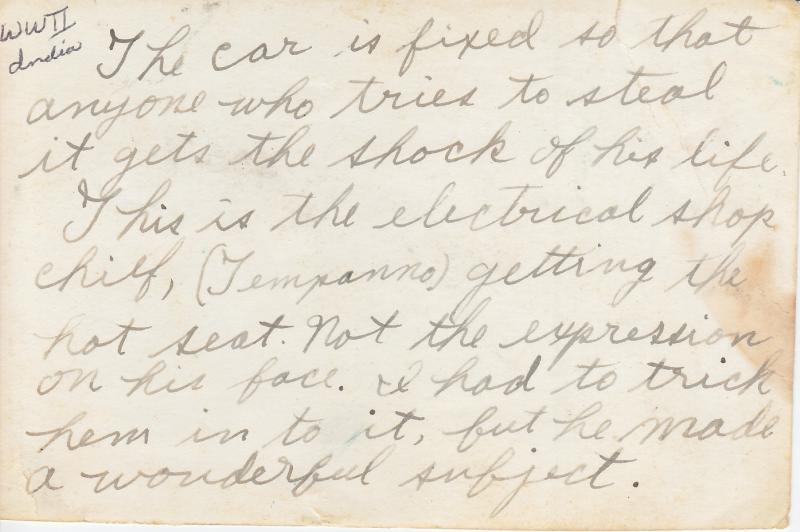 WWII
India
The car is fixed so that
anyone who tries to steal
it gets the shock of his life.
This is the electrical shop
chief, (Tempanno) getting the
hot seat. Not the expression
on his face. I had to trick
hem in to it, but he made
a wonderful subject.